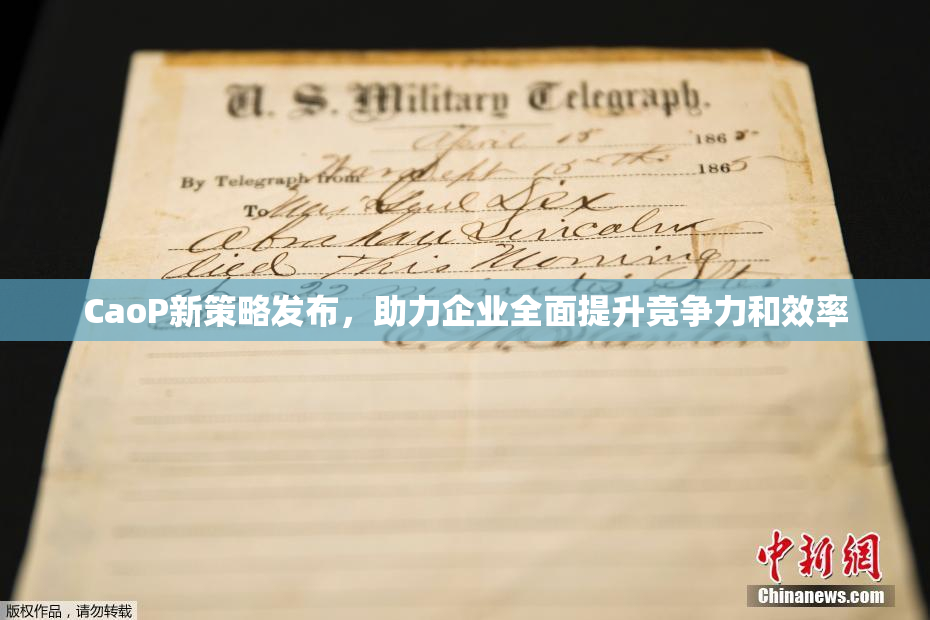 U. S. Military Telegraph.
April 15 1865
By Telegraph from War Dept 15th 1865
To Maj Genl Dix
Abraham Lincoln
died This Morning
22 minutes after
CaoP新策略发布，助力企业全面提升竞争力和效率
E. M. Stanton
中新网
Chinanews.com
版权作品，请勿转载